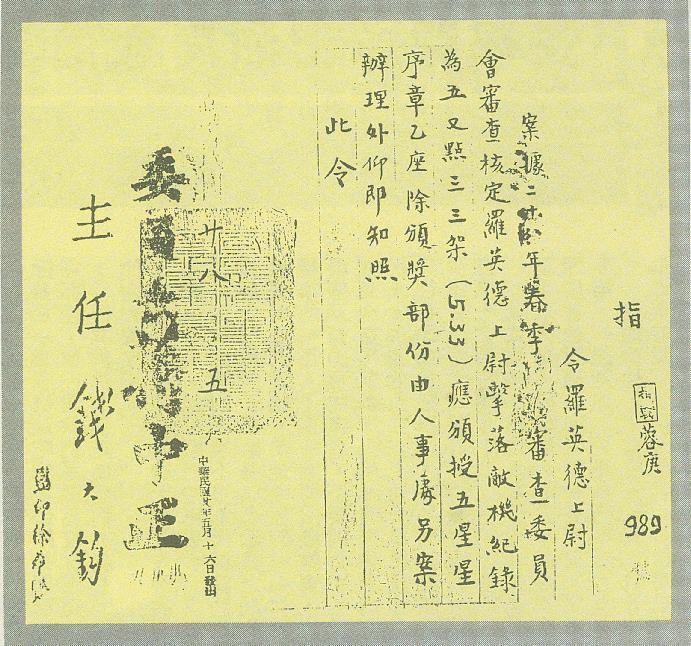 指
蓉庚
989
號
令羅英德上尉
案據二十八年春季審查委員
會審查核定羅英德上尉擊落敵機紀錄
為五又點三三架(5.33)應頒授五星星
序章乙座除頒獎部份由人事處另案
辦理外仰即知照
此令
委員長蔣中正
主任 錢大鈞
廿八 五
中華民國廿八年五月十六日發出
監印徐